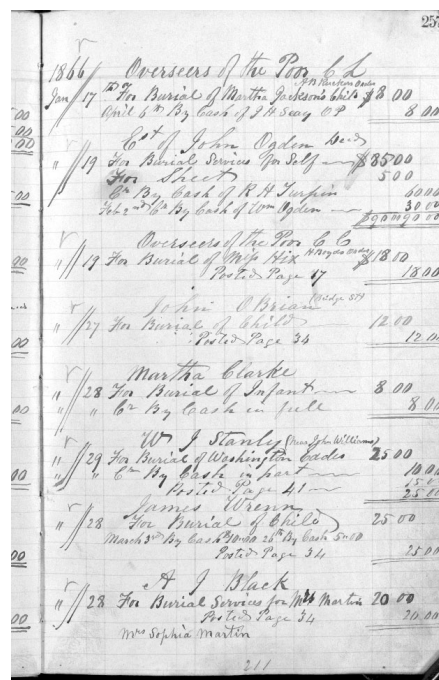 257
1866 Overseers of the Poor C L
Jan 17 For Burial of Martha Jackson's Child $8 00
April 6th By Cash of J H Seay O P 8 00
Est of John Ogden Decd
" 19 For Burial Services for Self $85 00
For Sheet 5 00
Cr By Cash of R H Turpin 60 00
Feb 2nd Cr By Cash of Wm Ogden 30 00
$90 00 90 00
Overseers of the Poor C C
" 19 For Burial of Miss Hix $18 00
Posted Page 17 18 00
John O Brian (Bridge St)
" 27 For Burial of Child 12.00
Posted Page 34 12.00
Martha Clarke
" 28 For Burial of Infant 8 00
" " Cr By Cash in full 8 00
W J Stanly (Near John Williams)
" 29 For Burial of Washington Eades 25 00
" " Cr By Cash in part 10 00
Posted Page 41 15 00
25 00
James Wrenn
" 28 For Burial of Child 25 00
March 3rd By Cash 10.00 26th By Cash 5.00
Posted Page 34 25 00
A J Black
" 28 For Burial Services for Mrs Martin 20 00
Posted Page 34 20 00
Mrs Sophia Martin
211